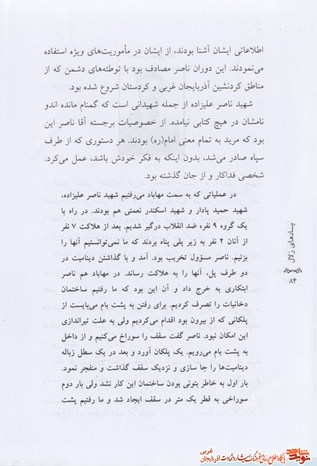 اطلاعاتی ایشان آشنا بودند، از ایشان در مأموریت‌های ویژه استفاده
می‌نمودند. این دوران ناصر مصادف بود با توطئه‌های دشمن که از
مناطق کردنشین آذربایجان غربی و کردستان شروع شده بود.
شهید ناصر علیزاده از جمله شهیدانی است که گمنام مانده اندو
نامشان در هیچ کتابی نیامده. از خصوصیات برجسته آقا ناصر این
بود که مرید به تمام معنی امام(ره) بودند. هر دستوری که از طرف
سپاه صادر می‌شد، بدون اینکه به فکر خودش باشد، عمل می‌کرد.
شخصی فداکار و از جان گذشته بود.
در عملیاتی که به سمت مهاباد می‌رفتیم شهید ناصر علیزاده،
شهید حمید پادار و شهید اسکندر نعمتی هم بودند. در راه با
یک گروه ۹ نفره ضد انقلاب درگیر شدیم. بعد از هلاکت ۷ نفر
از آنان ۲ نفر به زیر پلی پناه بردند که ما نمی‌توانستیم آنها را
بزنیم. ناصر مسؤول تخریب بود. آمد و با گذاشتن دینامیت در
دو طرف پل، آنها را به هلاکت رساند. در مهاباد هم ناصر
ابتکاری به خرج داد و آن این بود که ما می‌رفتیم ساختمان
دخانیات را تصرف کردیم. برای رفتن به پشت بام می‌بایست از
پلکانی که از بیرون بود اقدام می‌کردیم ولی به علت تیراندازی
این امکان نبود. ناصر گفت سقف را سوراخ می‌کنیم و از داخل
به پشت بام می‌رویم. یک پلکان آورد و بعد در یک سطل زباله
دینامیت‌ها را جا سازی و نزدیک سقف گذاشت و منفجر نمود.
بار اول به خاطر بتونی بودن ساختمان این کار نشد ولی بار دوم
سوراخی به قطر یک متر در سقف ایجاد شد و ما رفتیم پشت
یادهای زلال
۸۴